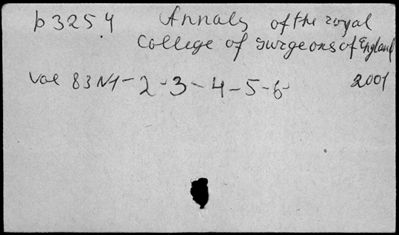 p3254 Annals of the royal
College of surgeons of England
Vol 83 N1-2-3-4-5-6- 2001